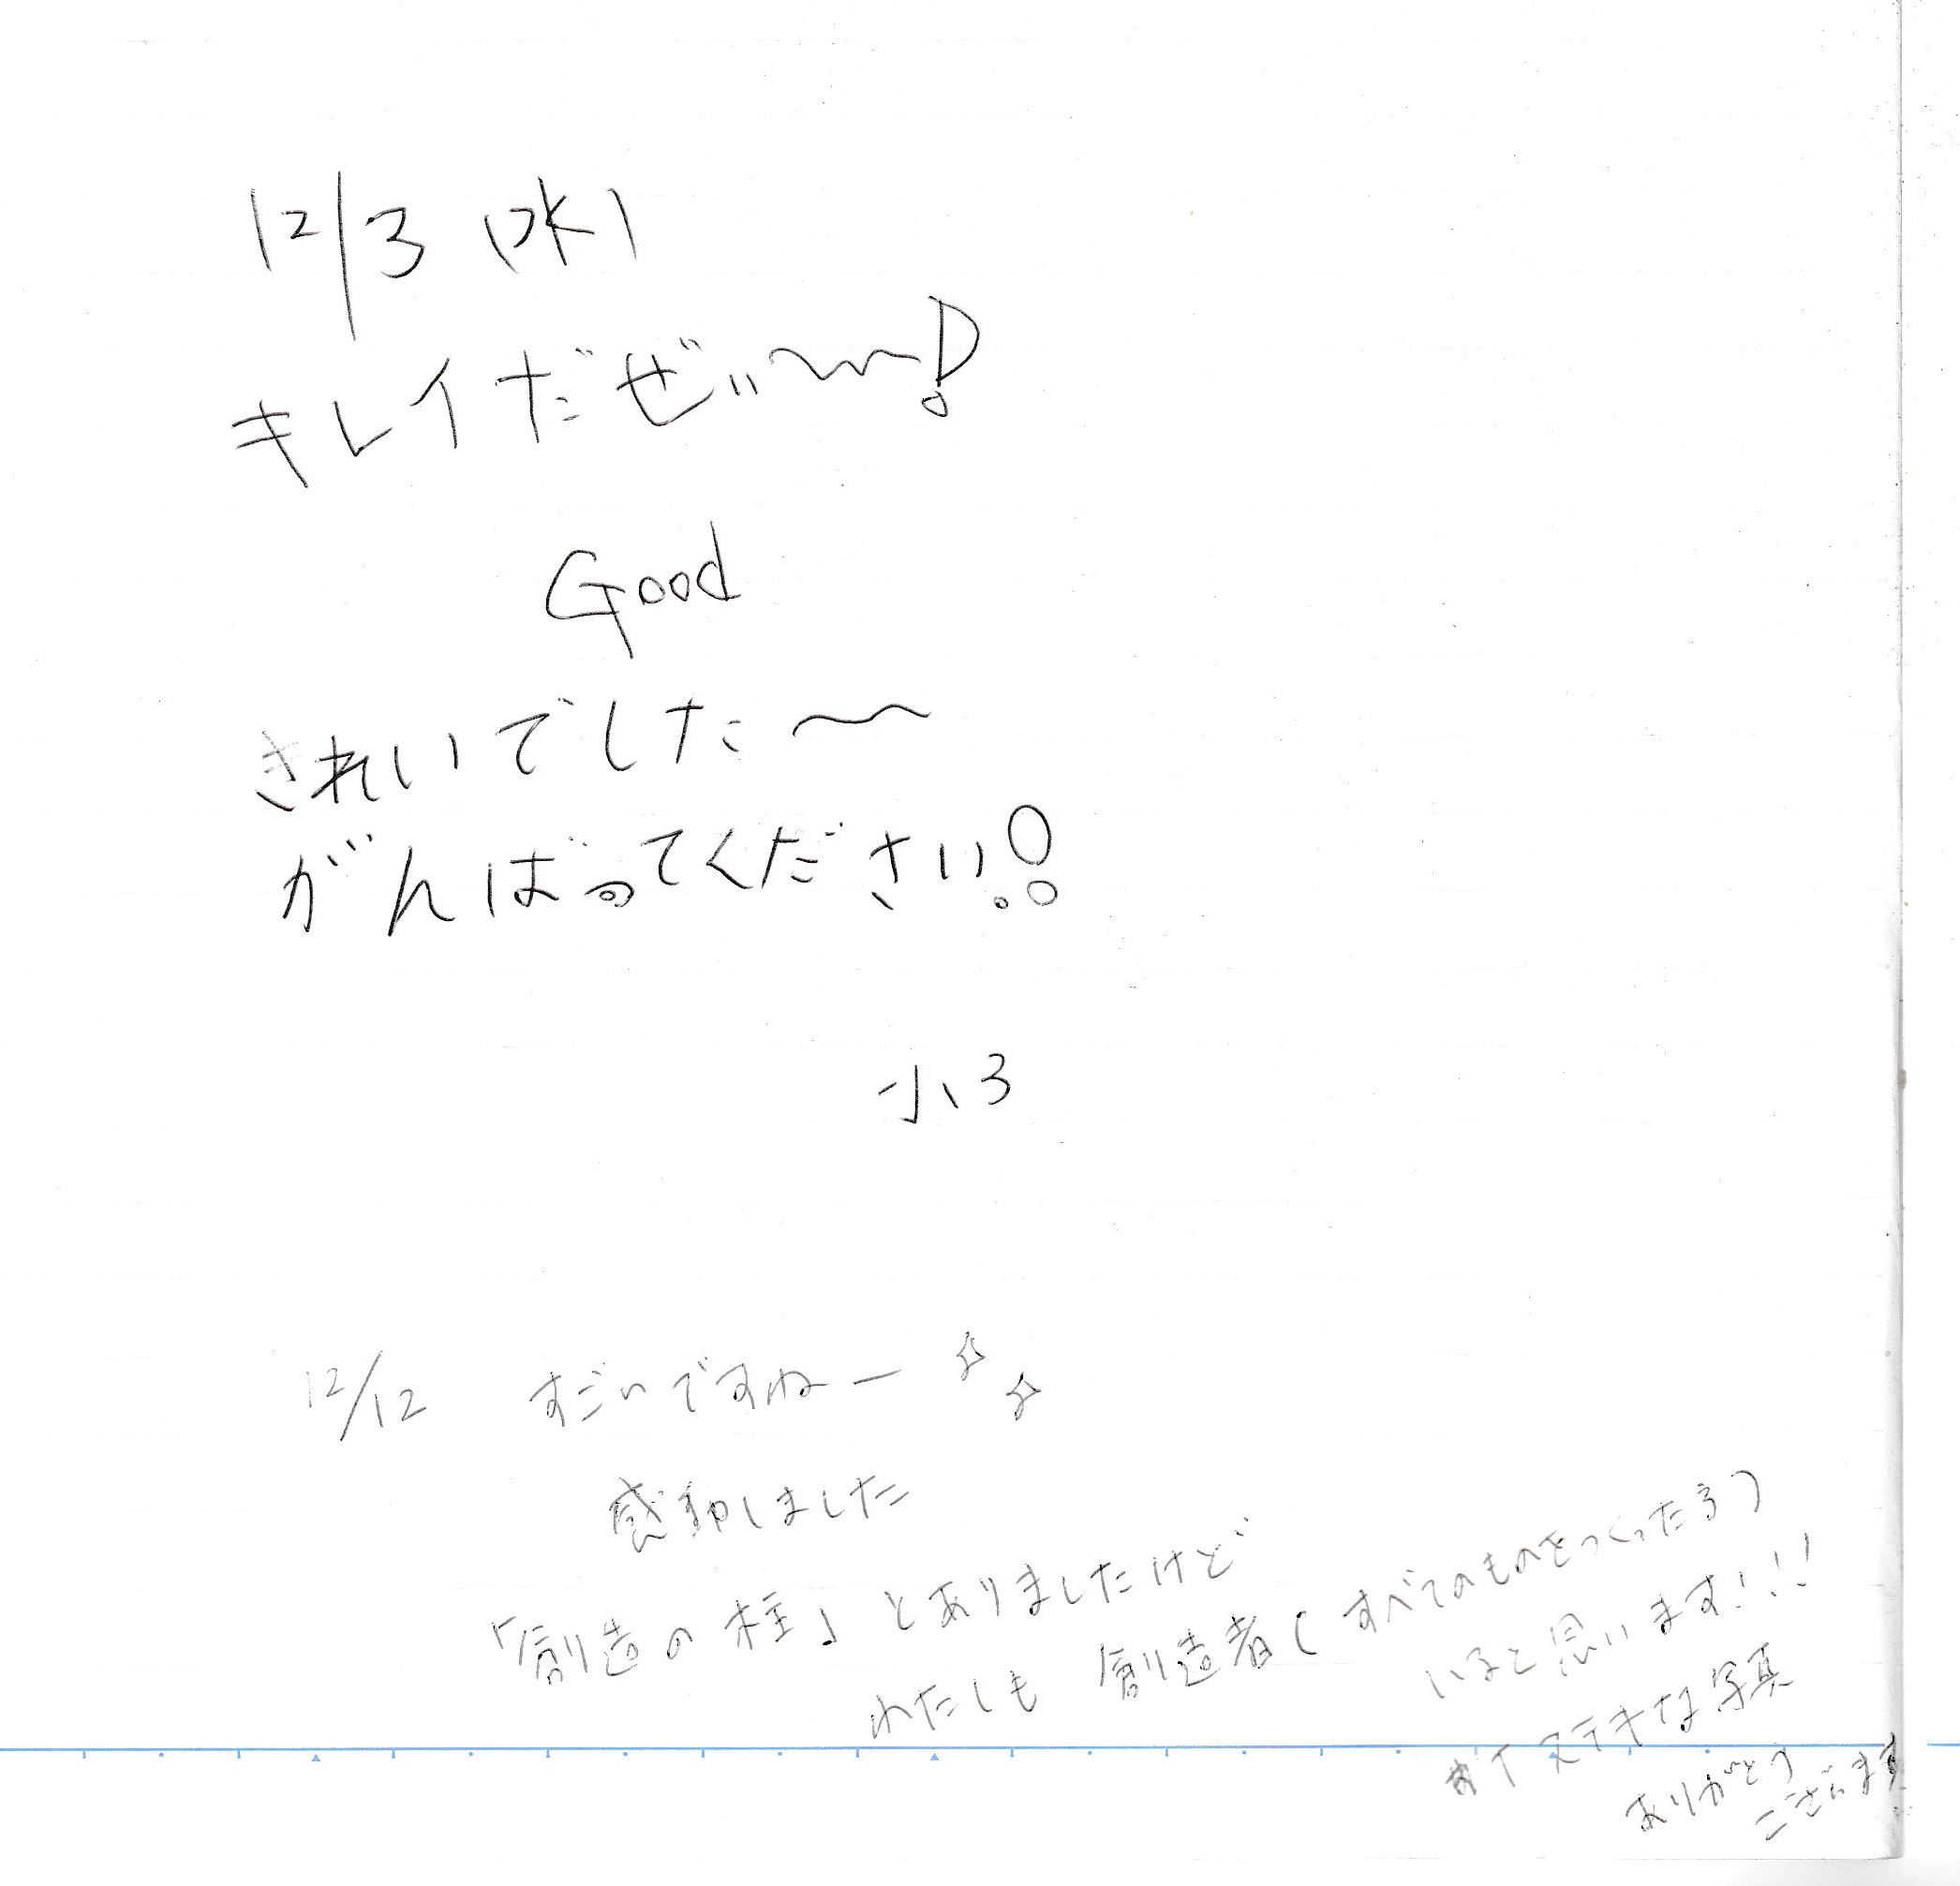 12/3 (水)
キレイだぜぃ〜!
Good
きれいでした〜
がんばってください。!
小3
12/12 すごいですねー
感動しました
「創造の柱」とありましたけど
わたしも創造者(すべてのものをつくった方)
いると思います!!!
ステキな写真
ありがとう
ございます